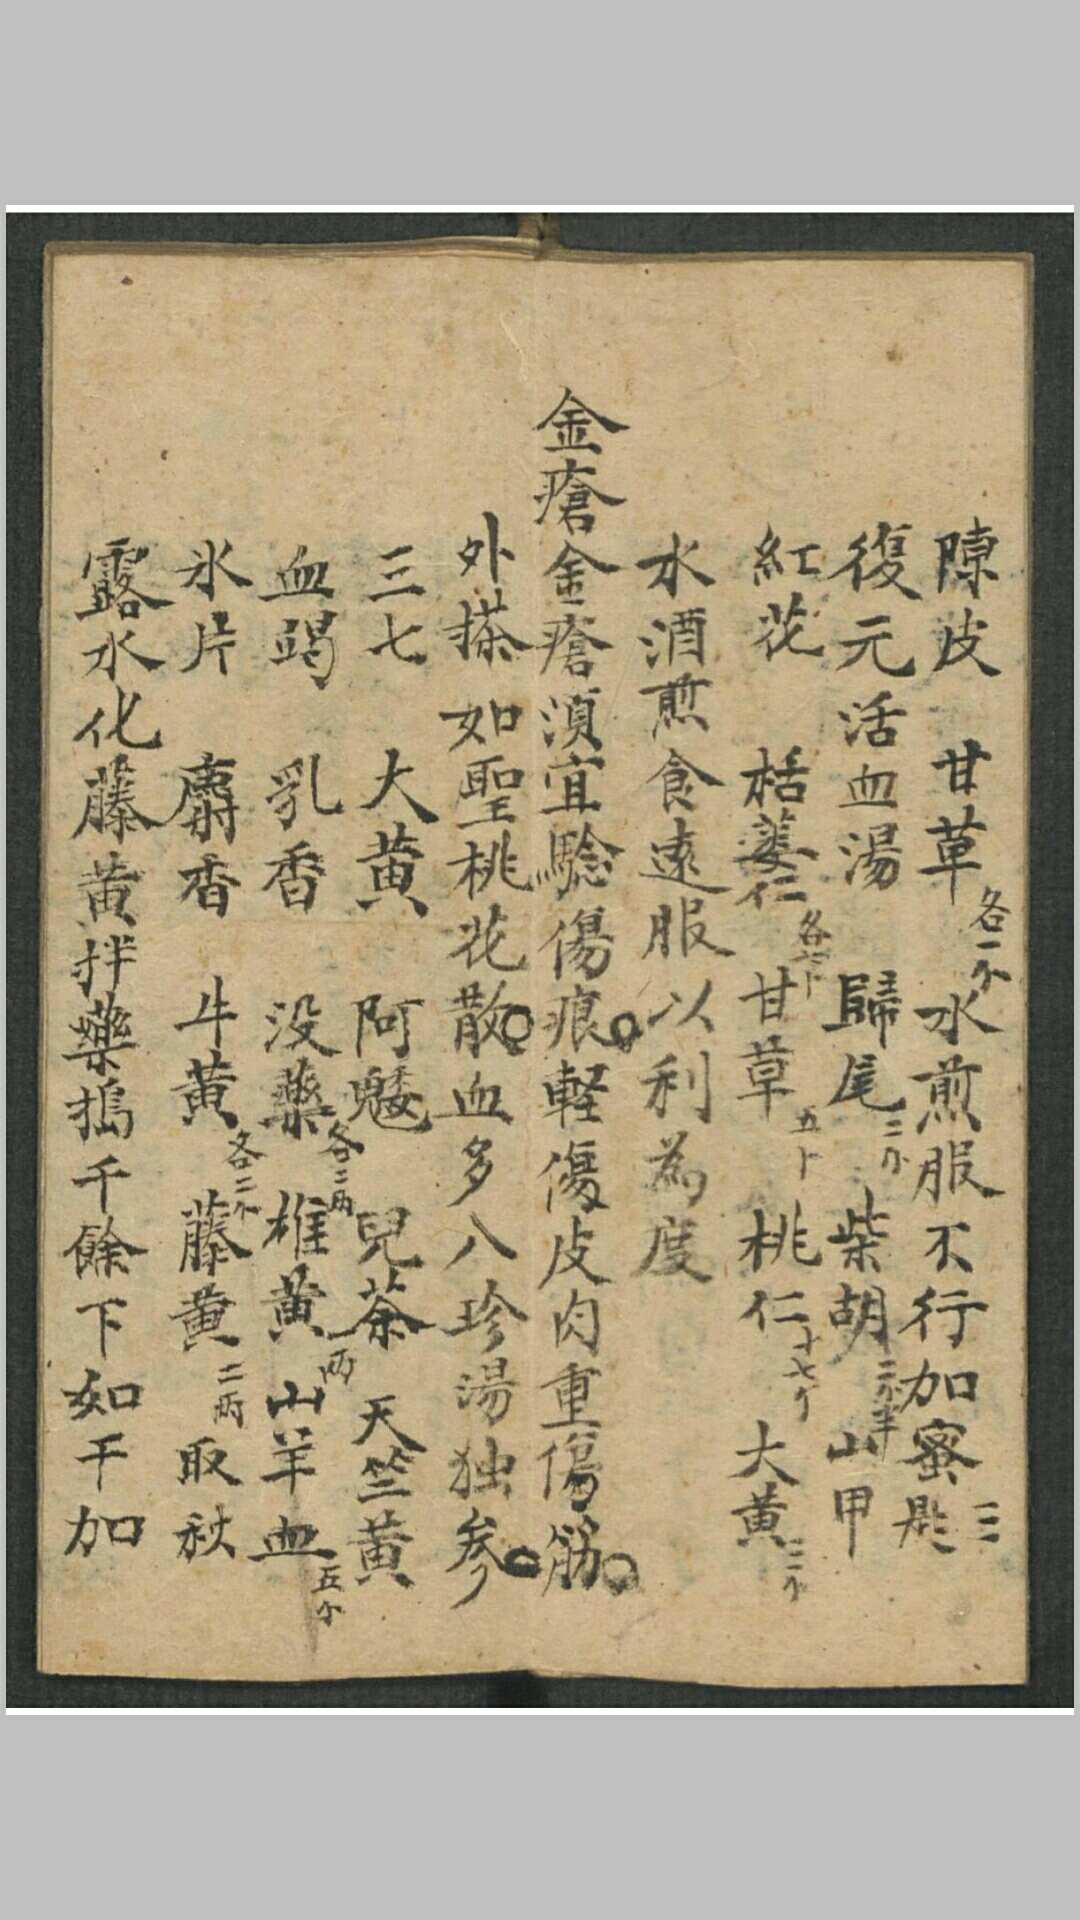 陳皮 甘草各一个 水煎服不行加蜜三匙
復元活血湯 歸尾二个 柴胡二个半 山甲
紅花 栝蔞仁各七卜 甘草五卜 桃仁十七个 大黄三个
水酒煎食遠服以利為度
金瘡金瘡須宜驗傷痕輕傷皮肉重傷筋
外搽如聖桃花散血多八珍湯独参
三七 大黄 阿魏 兒茶 天竺黄
血竭 乳香 没藥各二两 椎黄一两 山羊血五个
氷片 麝香 牛黄各二个 藤黄二两 取秋
露水化藤黄拌藥搗千餘下如干加